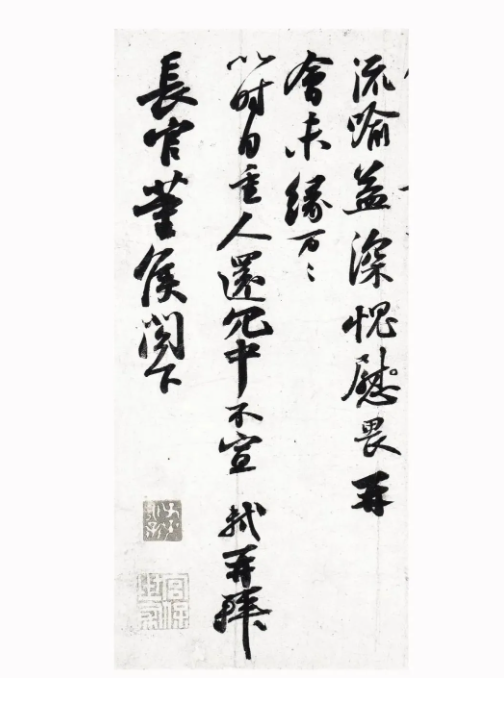 流喻益深愧慰畏再
會未緣万〻
以时自重人還冗中不宣 軾再拜
長官董侯閣下
宮保世家